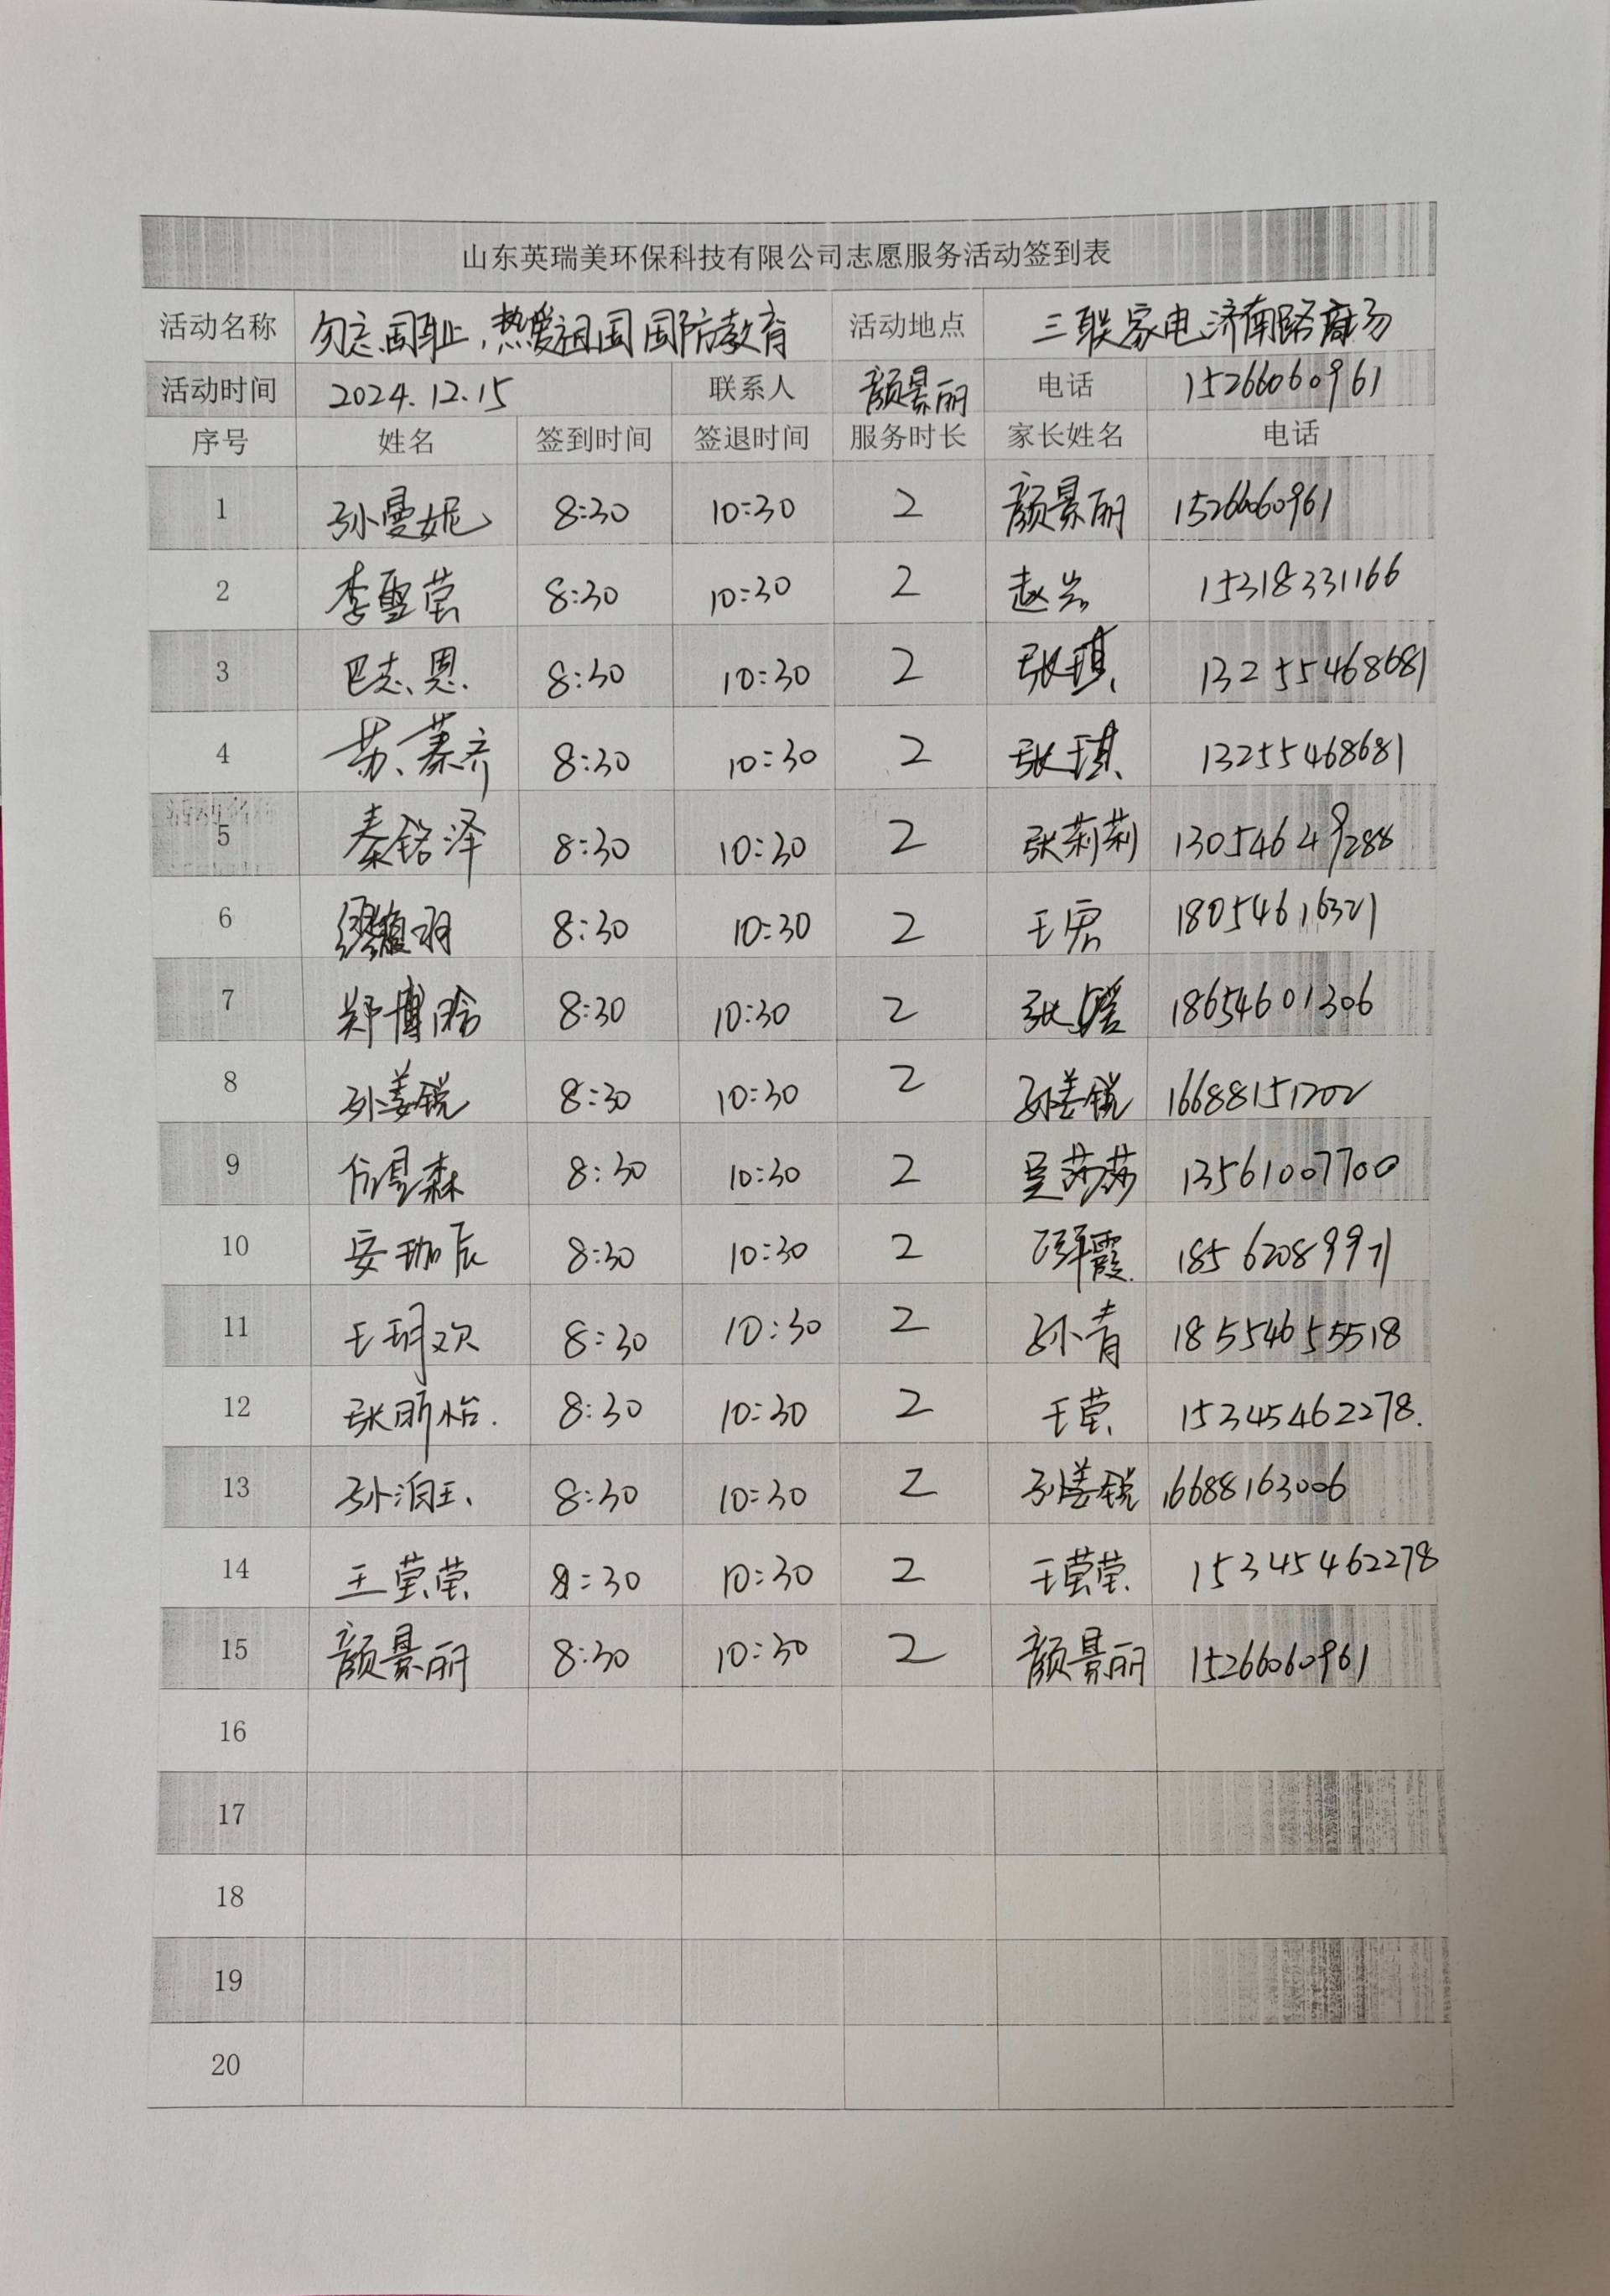 山东英瑞美环保科技有限公司志愿服务活动签到表
活动名称 勿忘国耻,热爱祖国国防教育 活动地点 三联家电济南路商场
活动时间 2024.12.15 联系人 颜景丽 电话 15266060961
序号 姓名 签到时间 签退时间 服务时长 家长姓名 电话
1 孙曼妮 8:30 10:30 2 颜景丽 15266060961
2 李雪莹 8:30 10:30 2 赵 15318331166
3 巴志恩 8:30 10:30 2 张琪 13255468681
4 苏慕齐 8:30 10:30 2 张琪 13255468681
5 秦铭泽 8:30 10:30 2 张莉莉 13054649288
6 8:30 10:30 2 王宏 18054616321
7 郑博晗 8:30 10:30 2 张 18654601306
8 孙姜锐 8:30 10:30 2 孙姜锐 16688151202
9 森 8:30 10:30 2 吴莎莎 13561007700
10 安珈辰 8:30 10:30 2 霞 18562089971
11 王玥欢 8:30 10:30 2 孙青 18554655518
12 张昕怡 8:30 10:30 2 王莹 15345462278
13 孙 8:30 10:30 2 孙姜锐 16688163006
14 王莹莹 8:30 10:30 2 王莹莹 15345462278
15 颜景丽 8:30 10:30 2 颜景丽 15266060961
16
17
18
19
20